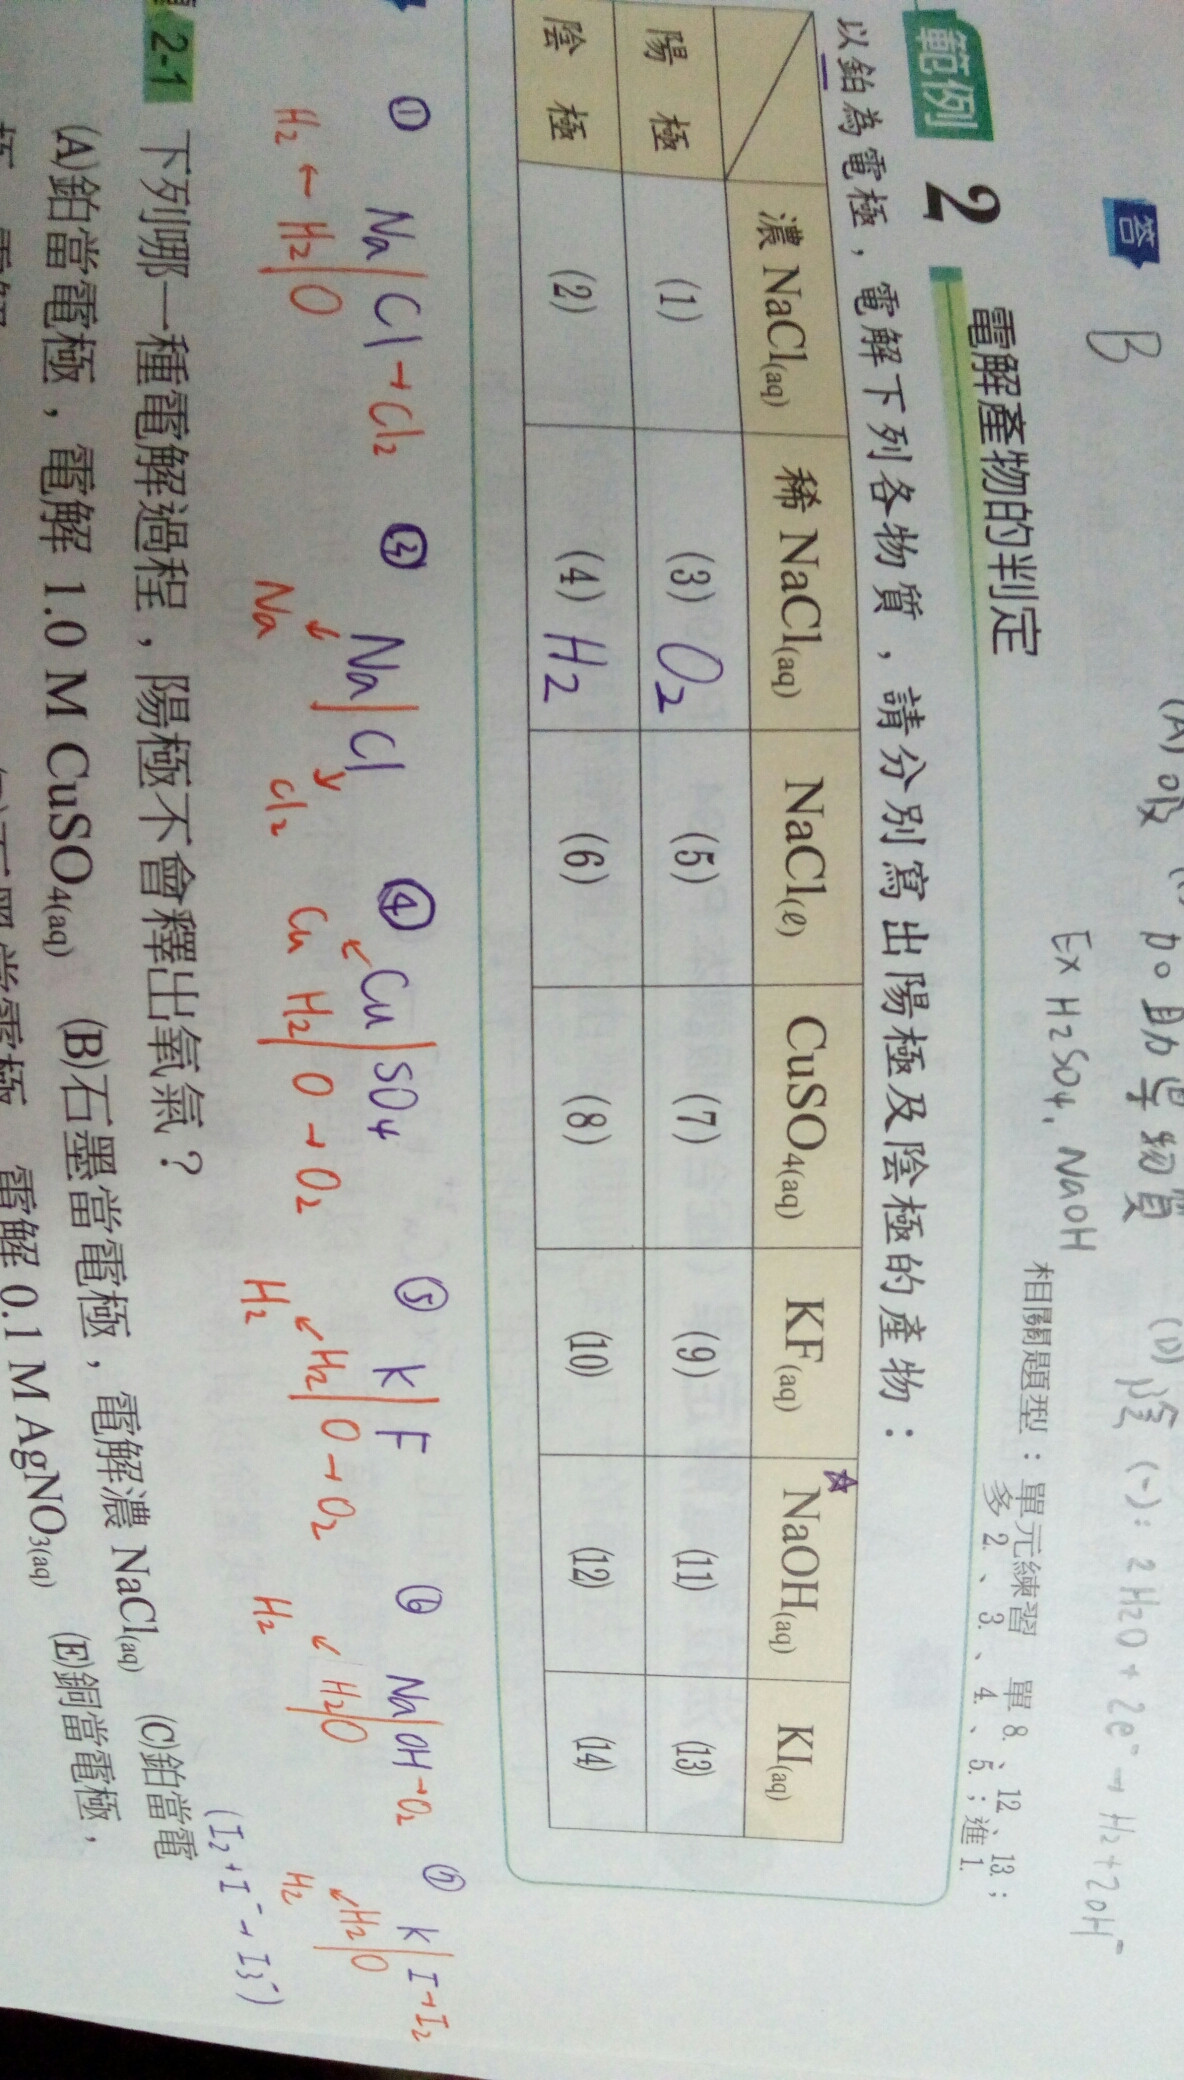 (A) 吸
加助導物質
(D) 陰 (-): 2H2O + 2e- → H2 + 2OH-
Ex H2SO4, NaOH
答 B
範例 2 電解產物的判定
相關題型：單元練習 單 8.、12.、13.；
多 2.、3.、4.、5.；進 1.
以鉑為電極，電解下列各物質，請分別寫出陽極及陰極的產物：
濃 NaCl(aq) 稀 NaCl(aq) NaCl(ℓ) CuSO4(aq) KF(aq) ☆ NaOH(aq) KI(aq)
陽極 (1) (3) O2 (5) (7) (9) (11) (13)
陰極 (2) (4) H2 (6) (8) (10) (12) (14)
① Na|Cl→Cl2 ③ Na|Cl ④ Cu|SO4 ⑤ K|F ⑥ Na|OH→O2 ⑦ K|I→I2
H2←H2|O Na Cl2 Cu H2|O→O2 H2 H2|O→O2 H2 H2|O H2 H2|O
(I2+I-→I3-)
2-1 下列哪一種電解過程，陽極不會釋出氧氣？
(A)鉑當電極，電解 1.0 M CuSO4(aq) (B)石墨當電極，電解濃 NaCl(aq) (C)鉑當電
電解 0.1 M AgNO3(aq) (E)銅當電極，